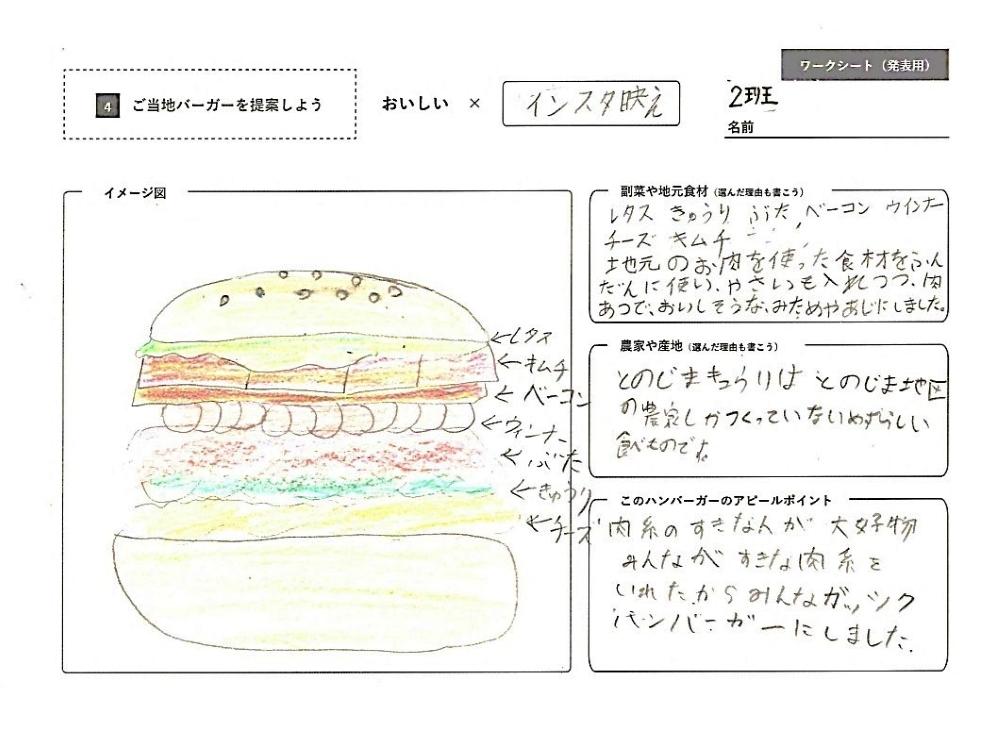 ワークシート（発表用）
4 ご当地バーガーを提案しよう
おいしい × インスタ映え
2班
名前
イメージ図
←レタス
←キムチ
←ベーコン
←ウィンナー
←ぶた
←きゅうり
←チーズ
副菜や地元食材（選んだ理由も書こう）
レタス きゅうり ぶた ベーコン ウインナー
チーズ キムチ
地元のお肉を使った食材をふん
だんに使い、やさいも入れつつ、肉
あつで、おいしそうな、みためやあじにしました。
農家や産地（選んだ理由も書こう）
とのじまきゅうりは とのじま地区
の農家しかつくっていないめずらしい
食べものです。
このハンバーガーのアピールポイント
肉系のすきな人が 大好物
みんなが すきな肉系を
いれたからみんな
ハンバーガーにしました。